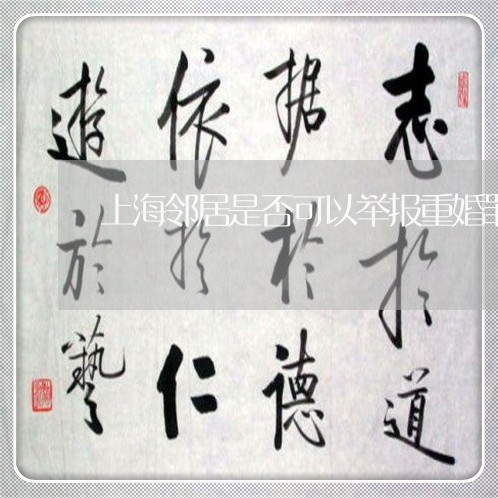 志於道
据於德
依於仁
遊於藝
上海邻居是否可以举报重婚